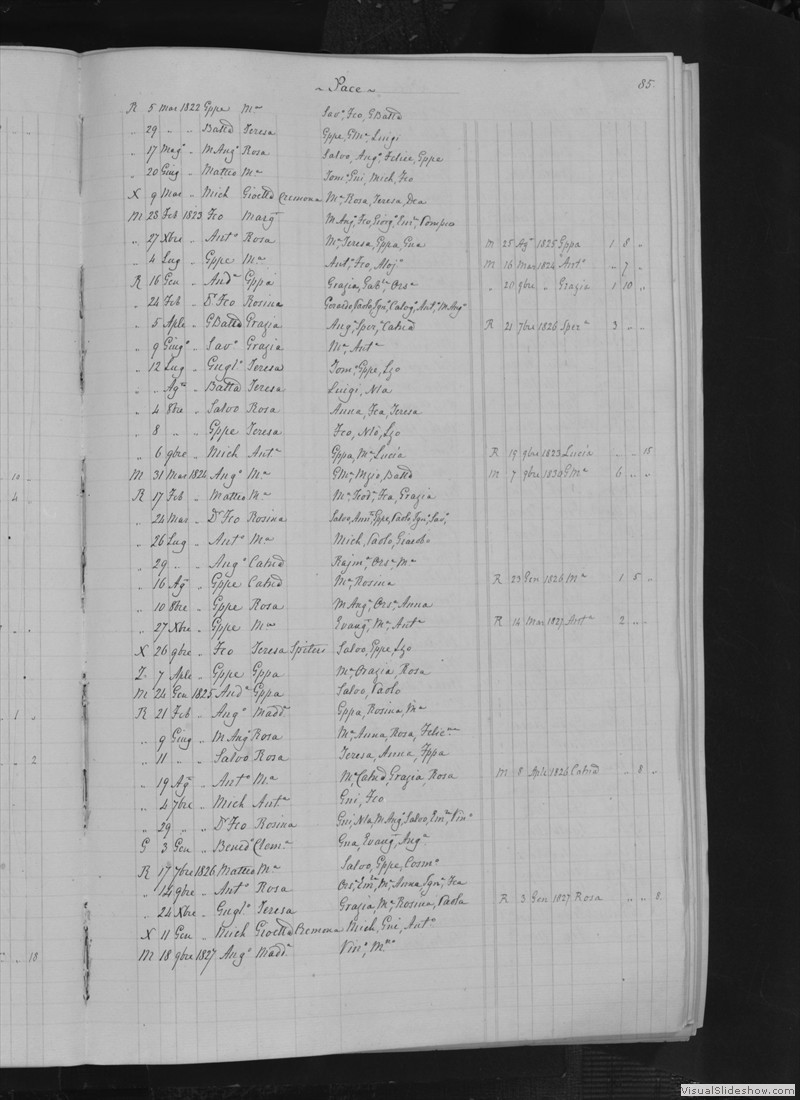 ~ Pace ~ 85.
R 5 Mar 1822 Gppe Mª Savº, Fco, GBattª
" 29 " " Battª Teresa Gppe, GMª, Luigi
" 17 Magº " MAngº Rosa Salvo, Angº, Felice, Gppe
" 20 Giugº " Matteo Mª Tomº, Gni, Mich, Fco
X 9 Mar " Mich Gioettª Cremona Mª, Rosa, Teresa, Dea
M 28 Feb 1823 Fco Margª MAngº, Fco, Giorgº, Emº, Pompeo
" 27 Xbre " Antº Rosa Mª, Teresa, Gppa, Gna M 25 Agº 1825 Gppa 1 8 "
" 4 Lug " Gppe Mª Antº, Fco, Alojº M 16 Mar 1824 Antº " 7 "
R 16 Gen " Andª Gppa Grazia, Gabˡª, Orsª " 20 9bre " Grazia 1 10 "
" 24 Feb " Dʳ Fco Rosina Gerardo, Paolo, Ignº, Calogº, Antº, MAngº
" 5 Aple " GBattª Grazia Angº, Sperª, Catnª R 21 7bre 1826 Sperª 3 " "
" 9 Giugº " Savº Grazia Mª, Antª
" 12 Lug " Guglº Teresa Tomº, Gppe, Lzo
" " Agº " Battª Teresa Luigi, Nla
" 4 8bre " Salvo Rosa Anna, Fca, Teresa
" 8 " " Gppe Teresa Fco, Nlò, Lzo
" 6 9bre " Mich Antª Gppa, Mª, Lucia R 19 9bre 1823 Lucia " " 15
M 31 Mar 1824 Angº Mª GMª, Mzio, Battª M 7 9bre 1830 GMª 6 " "
R 17 Feb " Matteo Mª Mª, Teodª, Fca, Grazia
" 24 Mar " Dʳ Fco Rosina Salvo, Annª, Gppe, Paolo, Ignº, Savº
" 26 Lug " Antº Mª Mich, Paolo, Giacobo
" 29 " " Angº Catnª Rajmº, Orsª, Mª
" 16 Agº " Gppe Catnª Mª, Rosina R 23 Gen 1826 Mª 1 5 "
" 10 8bre " Gppe Rosa MAngº, Orsª, Anna
" 27 Xbre " Gppe Mª Evangª, Mª, Antª R 14 Mar 1827 Antª 2 " "
X 26 9bre " Fco Teresa Spiteri Salvo, Gppe, Lzo
Z 7 Aple " Gppe Gppa Mª, Grazia, Rosa
M 24 Gen 1825 Andª Gppa Salvo, Paolo
R 21 Feb " Angº Maddª Gppa, Rosina, Mª
" 9 Giug " MAngº Rosa Mª, Anna, Rosa, Felicⁿª
" 11 " " Salvo Rosa Teresa, Anna, Gppa
" 19 Agº " Antº Mª Mª, Catnª, Grazia, Rosa M 8 Aple 1826 Catnª " 8 "
" 4 7bre " Mich Antª Gni, Fco
" 29 " " Dʳ Fco Rosina Gni, Nla, MAngº, Salvo, Emª, Vinº
G 3 Gen " Benedº Clemª Gna, Evangª, Angª
R 17 7bre 1826 Matteo Mª Salvo, Gppe, Cosmº
" 14 9bre " Antº Rosa Orsª, Emª, Mª, Anna, Ignª, Fca
" 24 Xbre " Guglº Teresa Grazia, Mª, Rosina, Paola R 3 Gen 1827 Rosa " " 8.
X 11 Gen " Mich Gioettª Cremona Mich, Gni, Antº
M 18 9bre 1827 Angº Maddª Vinº, Mⁿº
10 "
4 "
1 "
" 2
" " 18
VisualSlideshow.com